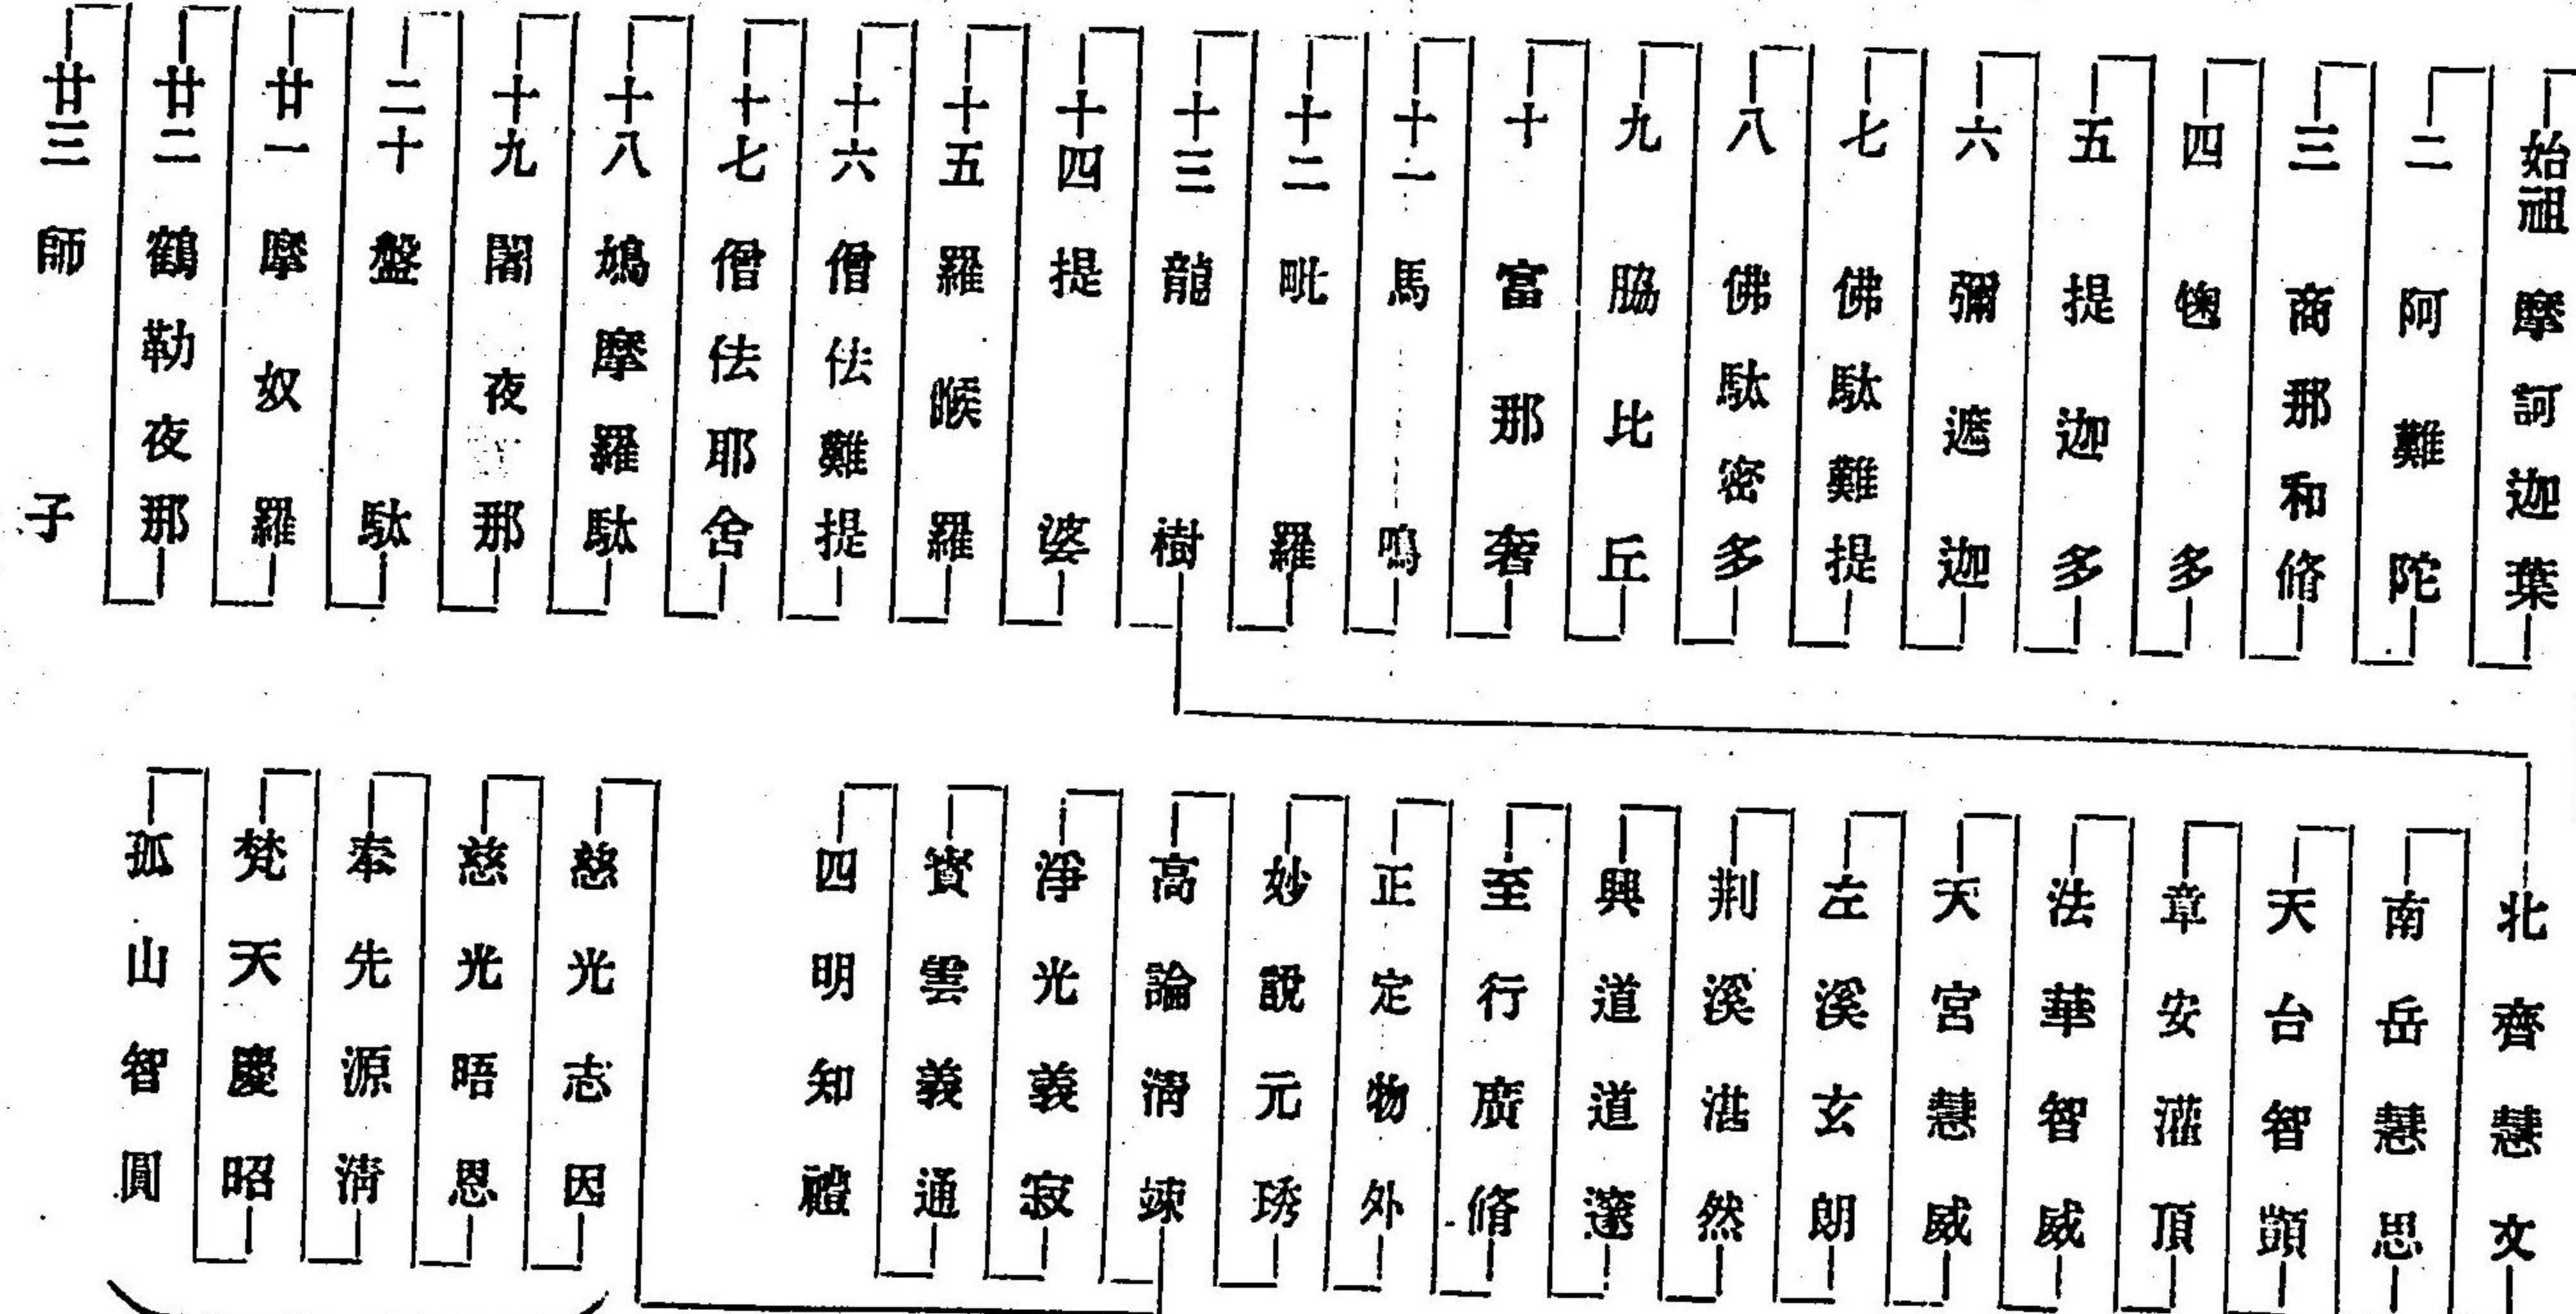 始祖摩訶迦葉
二阿難陀
三商那和脩
四毱多
五提迦多
六彌遮迦
七佛馱難提
八佛馱密多
九脇比丘
十富那奢
十一馬鳴
十二毗羅
十三龍樹
十四提婆
十五羅睺羅
十六僧佉難提
十七僧佉耶舍
十八鳩摩羅馱
十九闍夜那
二十盤馱
廿一摩奴羅
廿二鶴勒夜那
廿三師子
北齊慧文
南岳慧思
天台智顗
章安灌頂
法華智威
天宮慧威
左溪玄朗
荆溪湛然
興道道邃
至行廣脩
正定物外
妙說元琇
高論清竦
淨光義寂
寶雲義通
四明知禮
慈光志因
慈光晤恩
奉先源清
梵天慶昭
孤山智圓